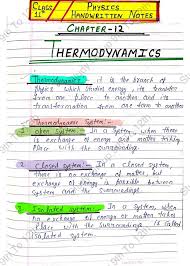 CLASS 11th
PHYSICS
HANDWRITTEN NOTES
CHAPTER-12
THERMODYNAMICS
Thermodynamics :- it is the branch of
physics which studies energy, its transfer
from one place to another and its
transformation from one form to another
Open System :- In a System, when there
is exchange of energy and matter taking
place with the surroundings.
2 Closed System :- In a closed system
there is no exchange of matter, but
exchange of energy is possible between
System and the Surroundings.
3 Isolated System :- In a System, when
no exchange of energy or matter takes
Place with the Surroundings is called
isolated system